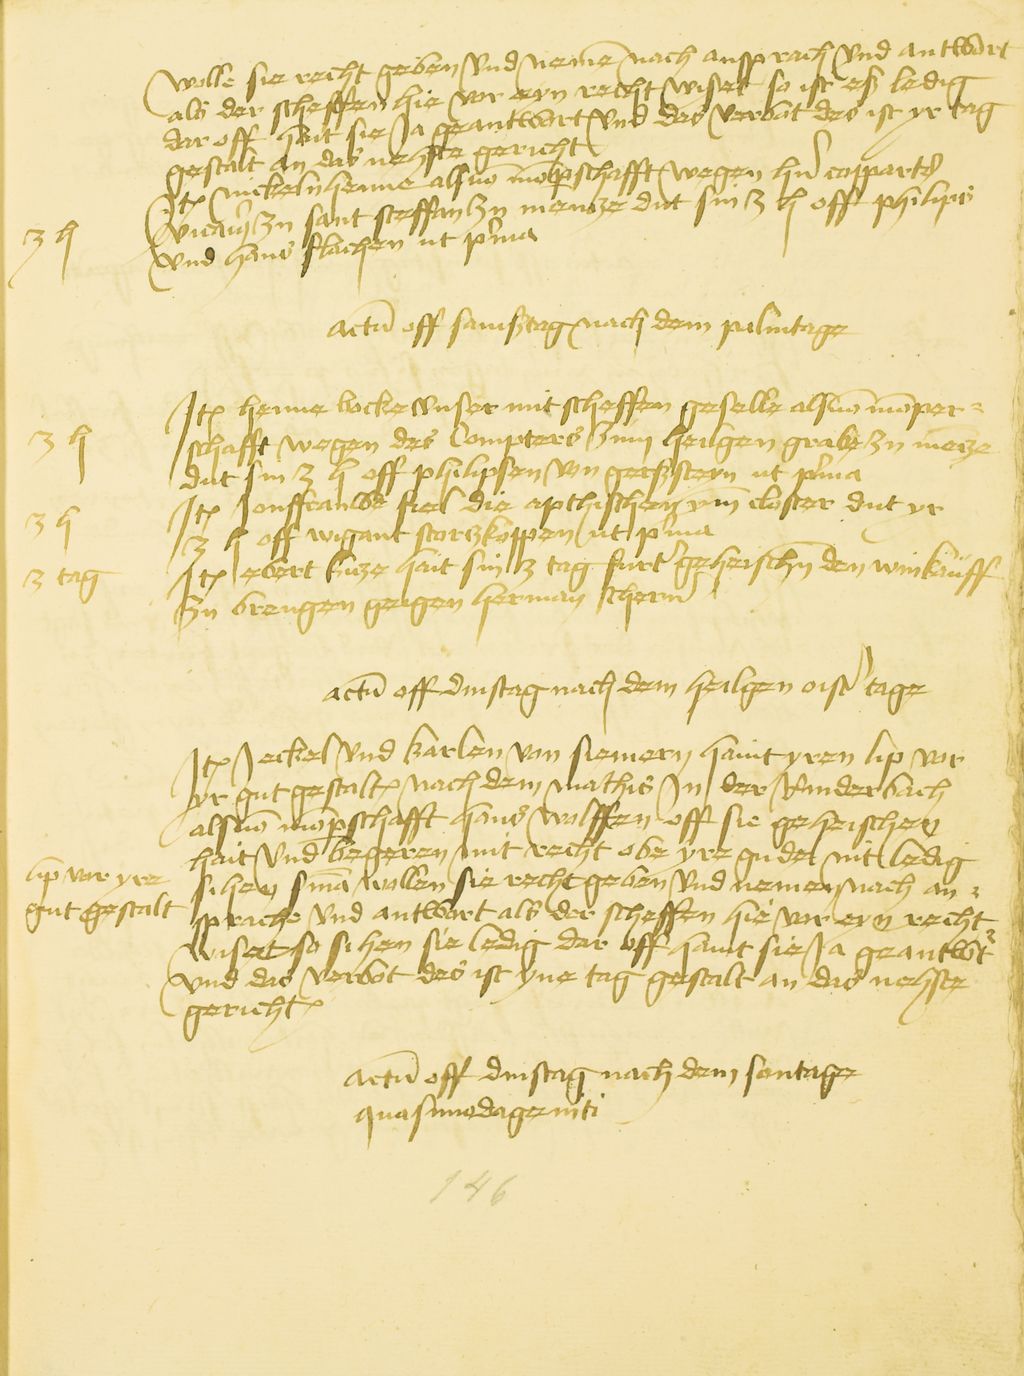 wolle sie recht geben vnd neme͞ nach ansprach vnd antwort
als der scheffen hie vor eyn recht wiset so ist eß ledig
dar off hait sie Ja geantwort vnd das verbot des ist yr tag
gestalt an das nehste gericht
Itē nickeln henne alsuō mōpschafft wegen hñ copparts
vicarij zu sant steffan zu mencze dut sin 3 h off philips
3 h
vnd hans flachen ut pͥma
actū off samßtag nach dem palmtage
Itē henne bocke vnser mit scheffen geselle alsuō mōper-
3 h
schafft wegen des Compters zum heilgen grabe zu mēcze
dut sin 3 h off philipsen von gerßsteyn ut pͥma
Itē Jonffrauwe fiel die apthischen ym closter dut yr
3 h
3 h off wigant storczkoppen ut pͥma
3 tag
Itē ebert kicze hait sin 3 tag furt geheischñ den winkauff
zu brengen geigen herman schern
actū off dinstag nach dem heilgen oistʼ tage
Itē Jeckel vnd karlen von siemern haint yren lip vor
yr gut gestalt nach dem mathis In der Runderbach
alsuō mōpschafft hans wolffen off sie geheischen
hait vnd begeren mit recht obe yre gude nit ledig
lip vor yre
sihen sūma wollen sie recht geben vnd nemen nach an-
gut gestalt
sprache vnd antwort als der scheffen hie vor eyn recht
wiset so sihen sie ledig dar off haint sie Ja geantwt
vnd das verbot des ist yne tag gestalt an das nehste
gericht
actū off dinstag nach dem sontage
quasimodogeniti
146